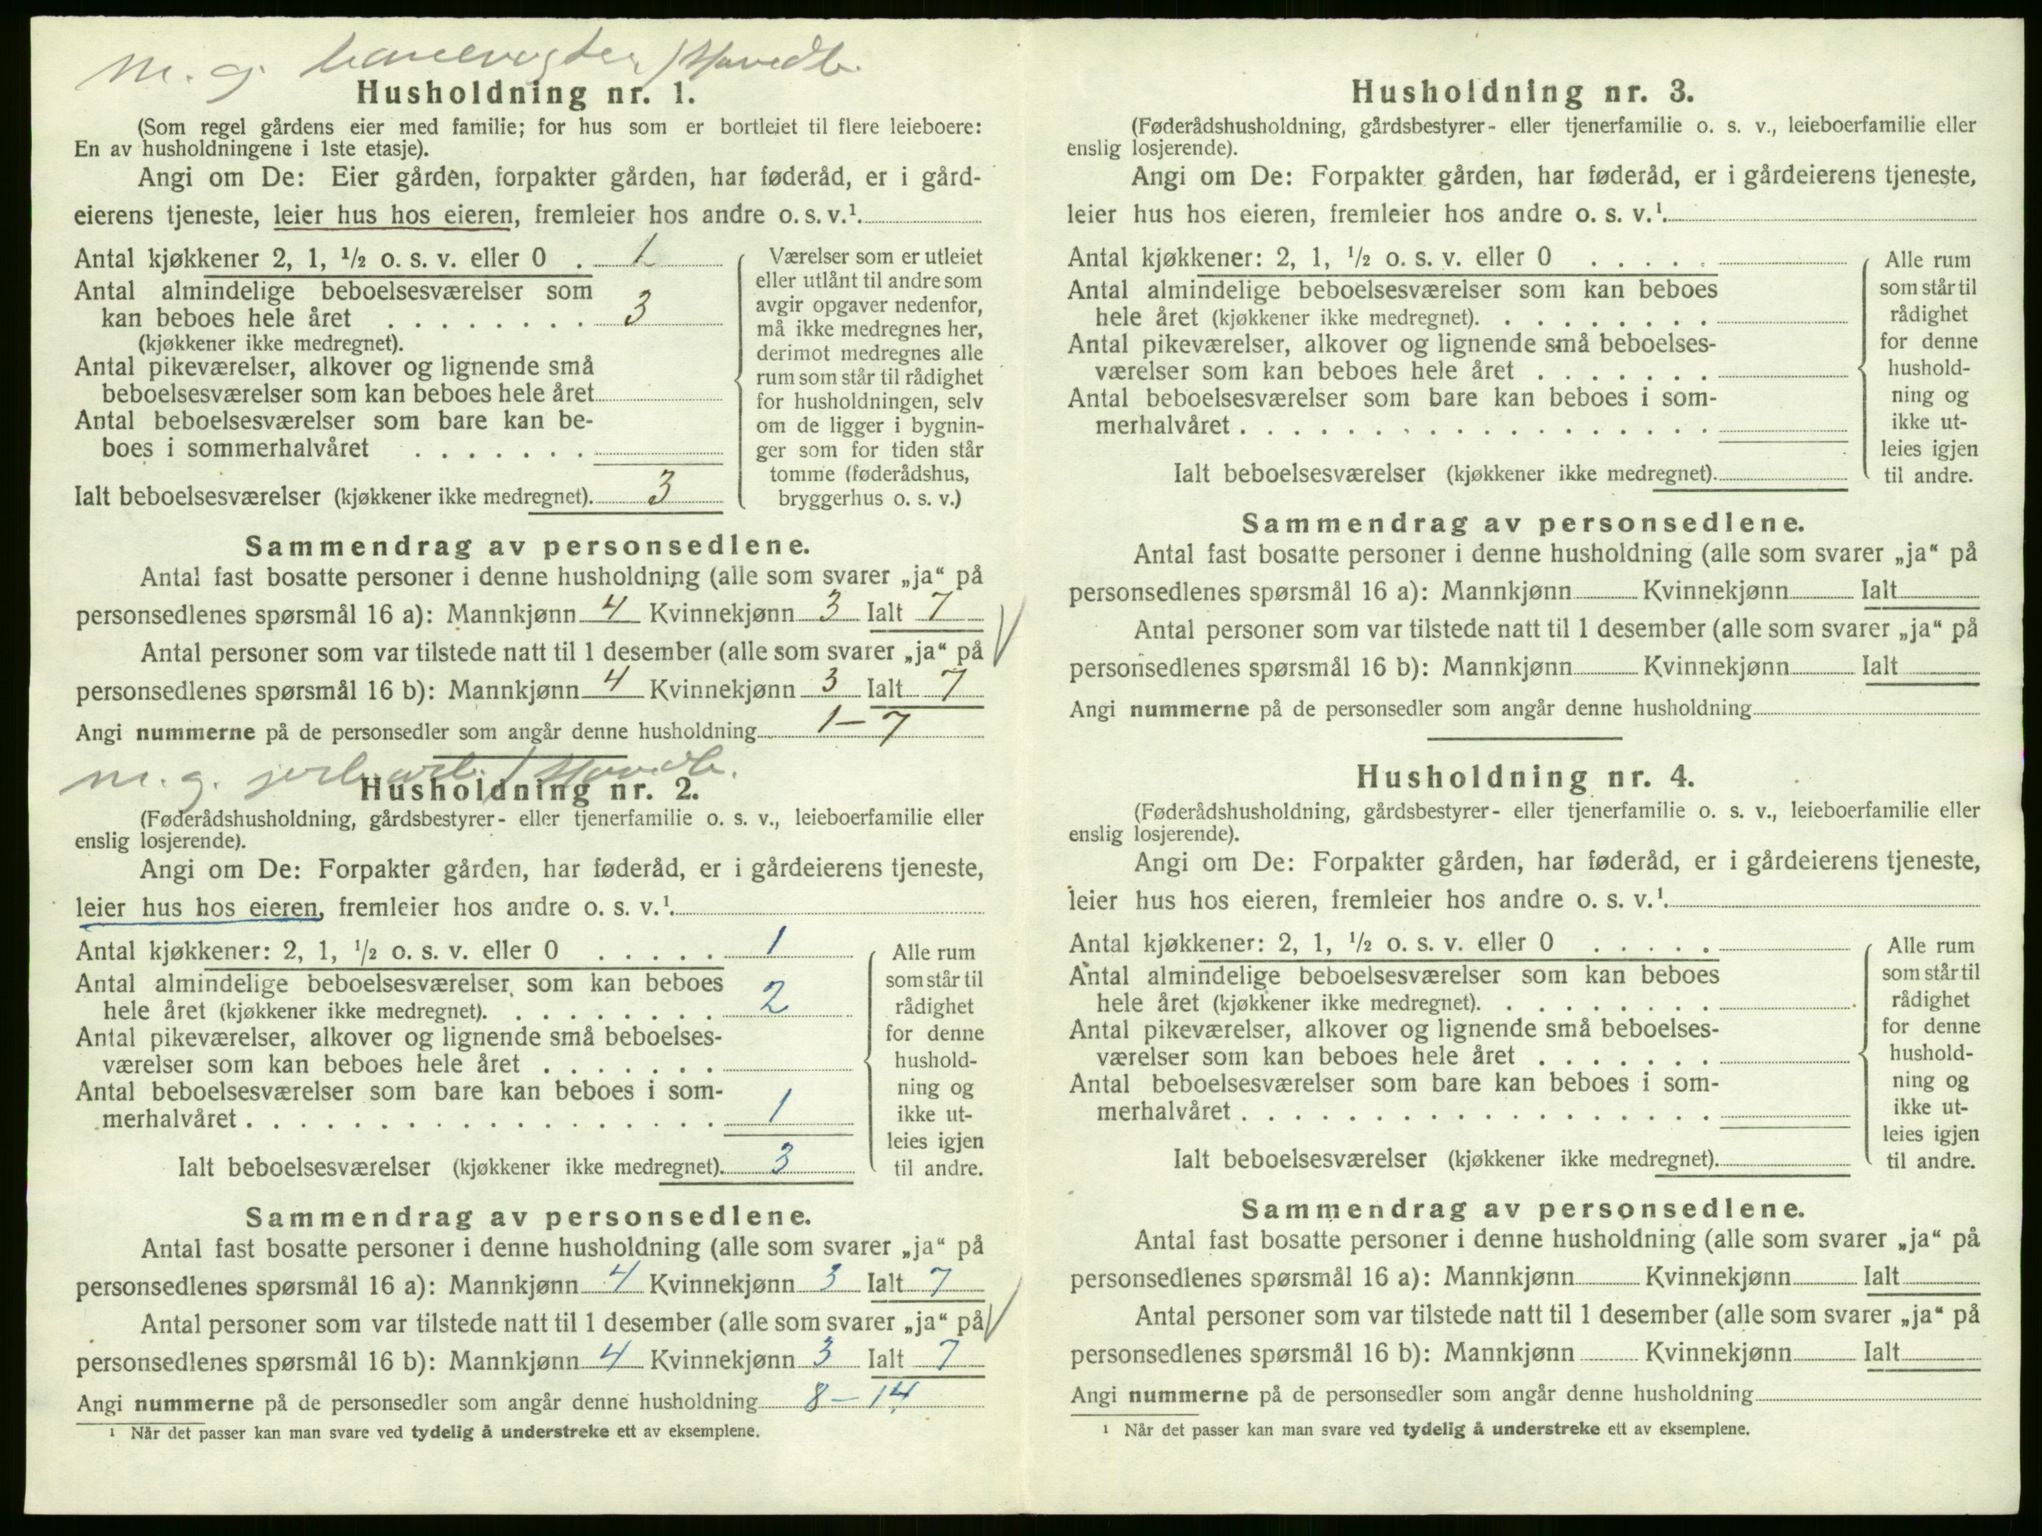 m. g. banevogter / Hovedb.
Husholdning nr. 1.
(Som regel gårdens eier med familie; for hus som er bortleiet til flere leieboere:
En av husholdningene i 1ste etasje).
Angi om De: Eier gården, forpakter gården, har føderåd, er i gård-
eierens tjeneste, leier hus hos eieren, fremleier hos andre o. s. v.¹
Antal kjøkkener 2, 1, ½ o. s. v. eller 0 . 1
Antal almindelige beboelsesværelser som
kan beboes hele året . . . . . . . . 3
(kjøkkener ikke medregnet).
Antal pikeværelser, alkover og lignende små
beboelsesværelser som kan beboes hele året
Antal beboelsesværelser som bare kan be-
boes i sommerhalvåret . . . . . . .
Ialt beboelsesværelser (kjøkkener ikke medregnet). 3
Værelser som er utleiet
eller utlånt til andre som
avgir opgaver nedenfor,
må ikke medregnes her,
derimot medregnes alle
rum som står til rådighet
for husholdningen, selv
om de ligger i bygnin-
ger som for tiden står
tomme (føderådshus,
bryggerhus o. s. v.)
Sammendrag av personsedlene.
Antal fast bosatte personer i denne husholdning (alle som svarer „ja“ på
personsedlenes spørsmål 16 a): Mannkjønn 4 Kvinnekjønn 3 Ialt 7
Antal personer som var tilstede natt til 1 desember (alle som svarer „ja“ på
personsedlenes spørsmål 16 b): Mannkjønn 4 Kvinnekjønn 3 Ialt 7
Angi nummerne på de personsedler som angår denne husholdning 1 – 7
m. g. jerb.arb. / Hovedb.
Husholdning nr. 2.
(Føderådshusholdning, gårdsbestyrer- eller tjenerfamilie o. s. v., leieboerfamilie eller
enslig losjerende).
Angi om De: Forpakter gården, har føderåd, er i gårdeierens tjeneste,
leier hus hos eieren, fremleier hos andre o. s. v.¹.
Antal kjøkkener: 2, 1, ½ o. s. v. eller 0 . . . . . 1
Antal almindelige beboelsesværelser som kan beboes
hele året (kjøkkener ikke medregnet). . . . . . . . . 2
Antal pikeværelser, alkover og lignende små beboelses-
værelser som kan beboes hele året . . . . . . .
Antal beboelsesværelser som bare kan beboes i som-
merhalvåret . . . . . . . . . . . . . . . . . . 1
Ialt beboelsesværelser (kjøkkener ikke medregnet). 3
Alle rum
som står til
rådighet
for denne
hushold-
ning og
ikke ut-
leies igjen
til andre.
Sammendrag av personsedlene.
Antal fast bosatte personer i denne husholdning (alle som svarer „ja“ på
personsedlenes spørsmål 16 a): Mannkjønn 4 Kvinnekjønn 3 Ialt 7
Antal personer som var tilstede natt til 1 desember (alle som svarer „ja“ på
personsedlenes spørsmål 16 b): Mannkjønn 4 Kvinnekjønn 3 Ialt 7
Angi nummerne på de personsedler som angår denne husholdning 8 – 14
¹ Når det passer kan man svare ved tydelig å understreke ett av eksemplene.
Husholdning nr. 3.
(Føderådshusholdning, gårdsbestyrer- eller tjenerfamilie o. s. v., leieboerfamilie eller
enslig losjerende).
Angi om De: Forpakter gården, har føderåd, er i gårdeierens tjeneste,
leier hus hos eieren, fremleier hos andre o. s. v.¹.
Antal kjøkkener: 2, 1, ½ o. s. v. eller 0 . . . . .
Antal almindelige beboelsesværelser som kan beboes
hele året (kjøkkener ikke medregnet). . . . . . . . .
Antal pikeværelser, alkover og lignende små beboelses-
værelser som kan beboes hele året . . . . . . .
Antal beboelsesværelser som bare kan beboes i som-
merhalvåret . . . . . . . . . . . . . . . . . .
Ialt beboelsesværelser (kjøkkener ikke medregnet).
Alle rum
som står til
rådighet
for denne
hushold-
ning og
ikke ut-
leies igjen
til andre.
Sammendrag av personsedlene.
Antal fast bosatte personer i denne husholdning (alle som svarer „ja“ på
personsedlenes spørsmål 16 a): Mannkjønn Kvinnekjønn Ialt
Antal personer som var tilstede natt til 1 desember (alle som svarer „ja“ på
personsedlenes spørsmål 16 b): Mannkjønn Kvinnekjønn Ialt
Angi nummerne på de personsedler som angår denne husholdning
Husholdning nr. 4.
(Føderådshusholdning, gårdsbestyrer- eller tjenerfamilie o. s. v., leieboerfamilie eller
enslig losjerende).
Angi om De: Forpakter gården, har føderåd, er i gårdeierens tjeneste,
leier hus hos eieren, fremleier hos andre o. s. v.¹.
Antal kjøkkener: 2, 1, ½ o. s. v. eller 0 . . . . .
Antal almindelige beboelsesværelser som kan beboes
hele året (kjøkkener ikke medregnet). . . . . . . . .
Antal pikeværelser, alkover og lignende små beboelses-
værelser som kan beboes hele året . . . . . . .
Antal beboelsesværelser som bare kan beboes i som-
merhalvåret . . . . . . . . . . . . . . . . . .
Ialt beboelsesværelser (kjøkkener ikke medregnet).
Alle rum
som står til
rådighet
for denne
hushold-
ning og
ikke ut-
leies igjen
til andre.
Sammendrag av personsedlene.
Antal fast bosatte personer i denne husholdning (alle som svarer „ja“ på
personsedlenes spørsmål 16 a): Mannkjønn Kvinnekjønn Ialt
Antal personer som var tilstede natt til 1 desember (alle som svarer „ja“ på
personsedlenes spørsmål 16 b): Mannkjønn Kvinnekjønn Ialt
Angi nummerne på de personsedler som angår denne husholdning
¹ Når det passer kan man svare ved tydelig å understreke ett av eksemplene.